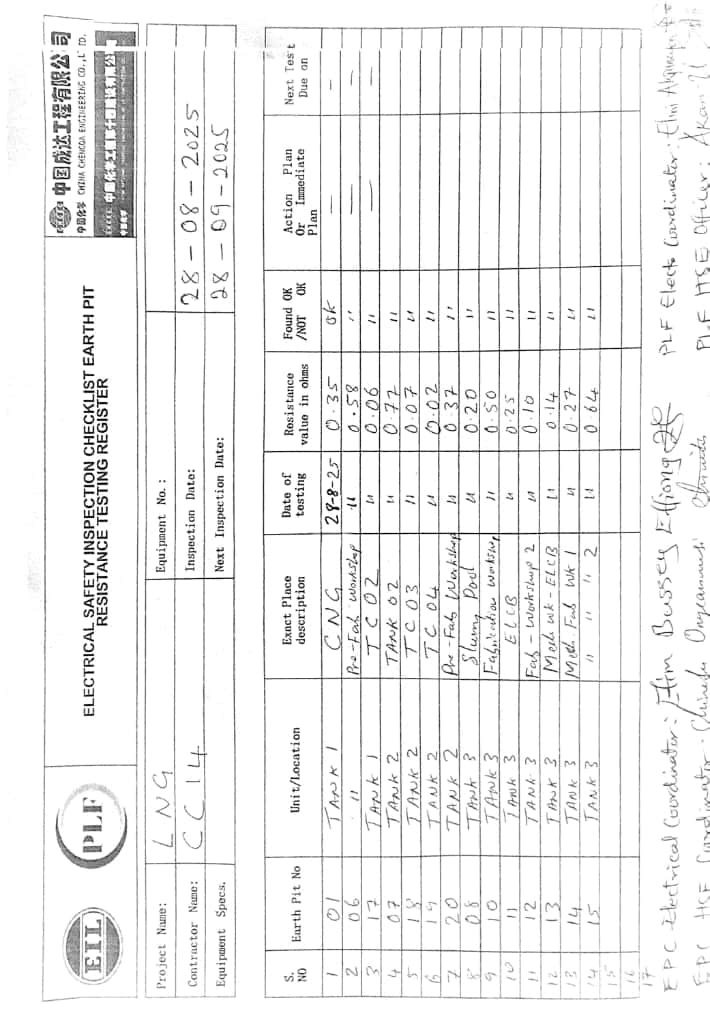 EIL
PLF
ELECTRICAL SAFETY INSPECTION CHECKLIST EARTH PIT
RESISTANCE TESTING REGISTER
中国成达工程有限公司
中国化学 CHINA CHENGDA ENGINEERING CO., LTD.
Project Name: LNG Equipment No.:
Contractor Name: CC14 Inspection Date: 28-08-2025
Equipment Specs. Next Inspection Date: 28-09-2025
S. NO Earth Pit No Unit/Location Exact Place description Date of testing Resistance value in ohms Found OK /NOT OK Action Plan Or Immediate Plan Next Test Due on
1 01 TANK 1 CNG 28-8-25 0.35 OK — —
2 06 " Pre-Fab Workshop " 0.58 " — —
3 17 TANK 1 TC 02 " 0.06 " — —
4 07 TANK 2 TANK 02 " 0.77 "
5 18 TANK 2 TC 03 " 0.07 "
6 19 TANK 2 TC 04 " 0.02 "
7 20 TANK 2 Pre-Fab Workshop " 0.37 "
8 08 TANK 3 Slump Pool " 0.20 "
9 10 TANK 3 Fabrication Workshop " 0.50 "
10 11 TANK 3 ELCB " 0.25 "
11 12 TANK 3 Fab-Workshop 2 " 0.10 "
12 13 TANK 3 Mech Wk-ELCB " 0.14 "
13 14 TANK 3 Mech. Fab WK 1 " 0.27 "
14 15 TANK 3 " " " 2 " 0.64 "
15
16
17
EPC Electrical Coordinator: Etim Bussey Effiong PLF Elects Coordinator:
EPC HSE Coordinator: PLF HSE Officer: